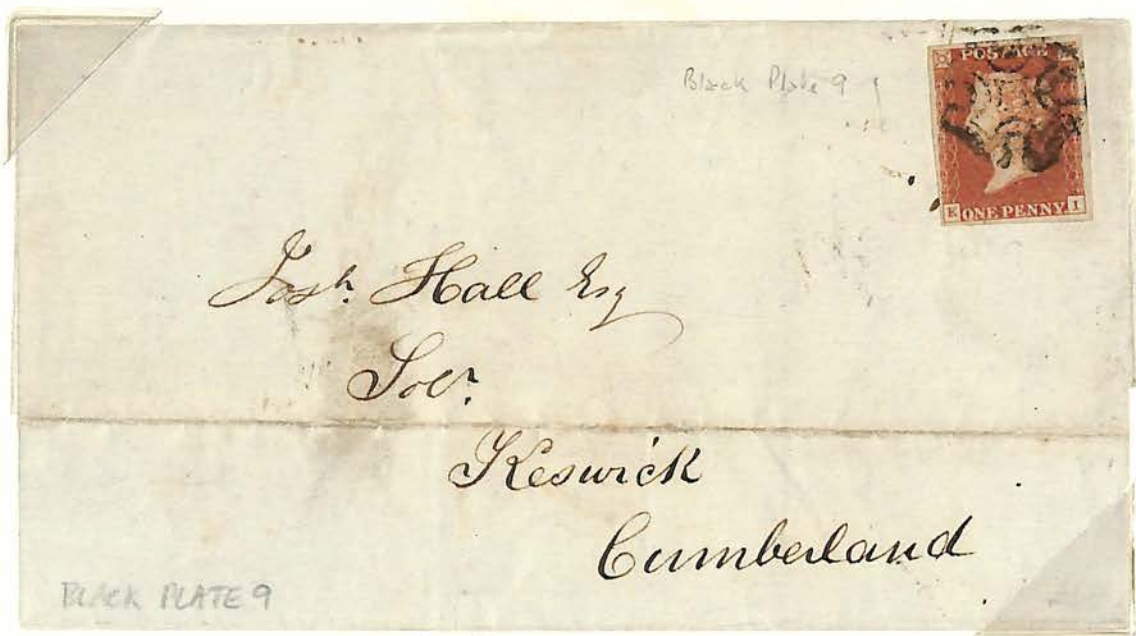 Black Plate 9
POSTAGE
E ONE PENNY I
Josh. Hall Esq
Solr.
Keswick
Cumberland
BLACK PLATE 9